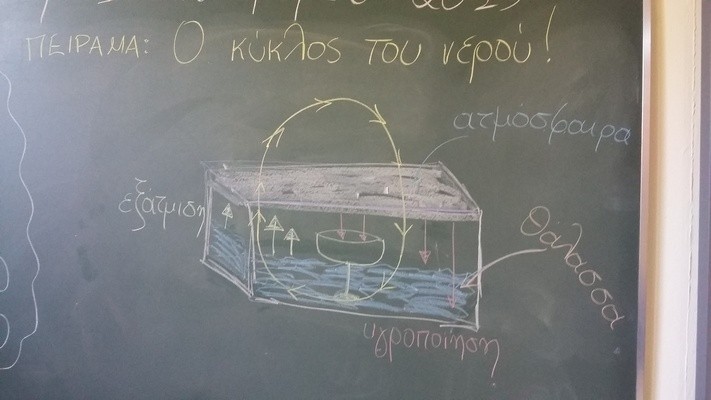 ΠΕΙΡΑΜΑ: Ο κύκλος του νερού!
ατμόσφαιρα
εξάτμιση
θάλασσα
υγροποίηση